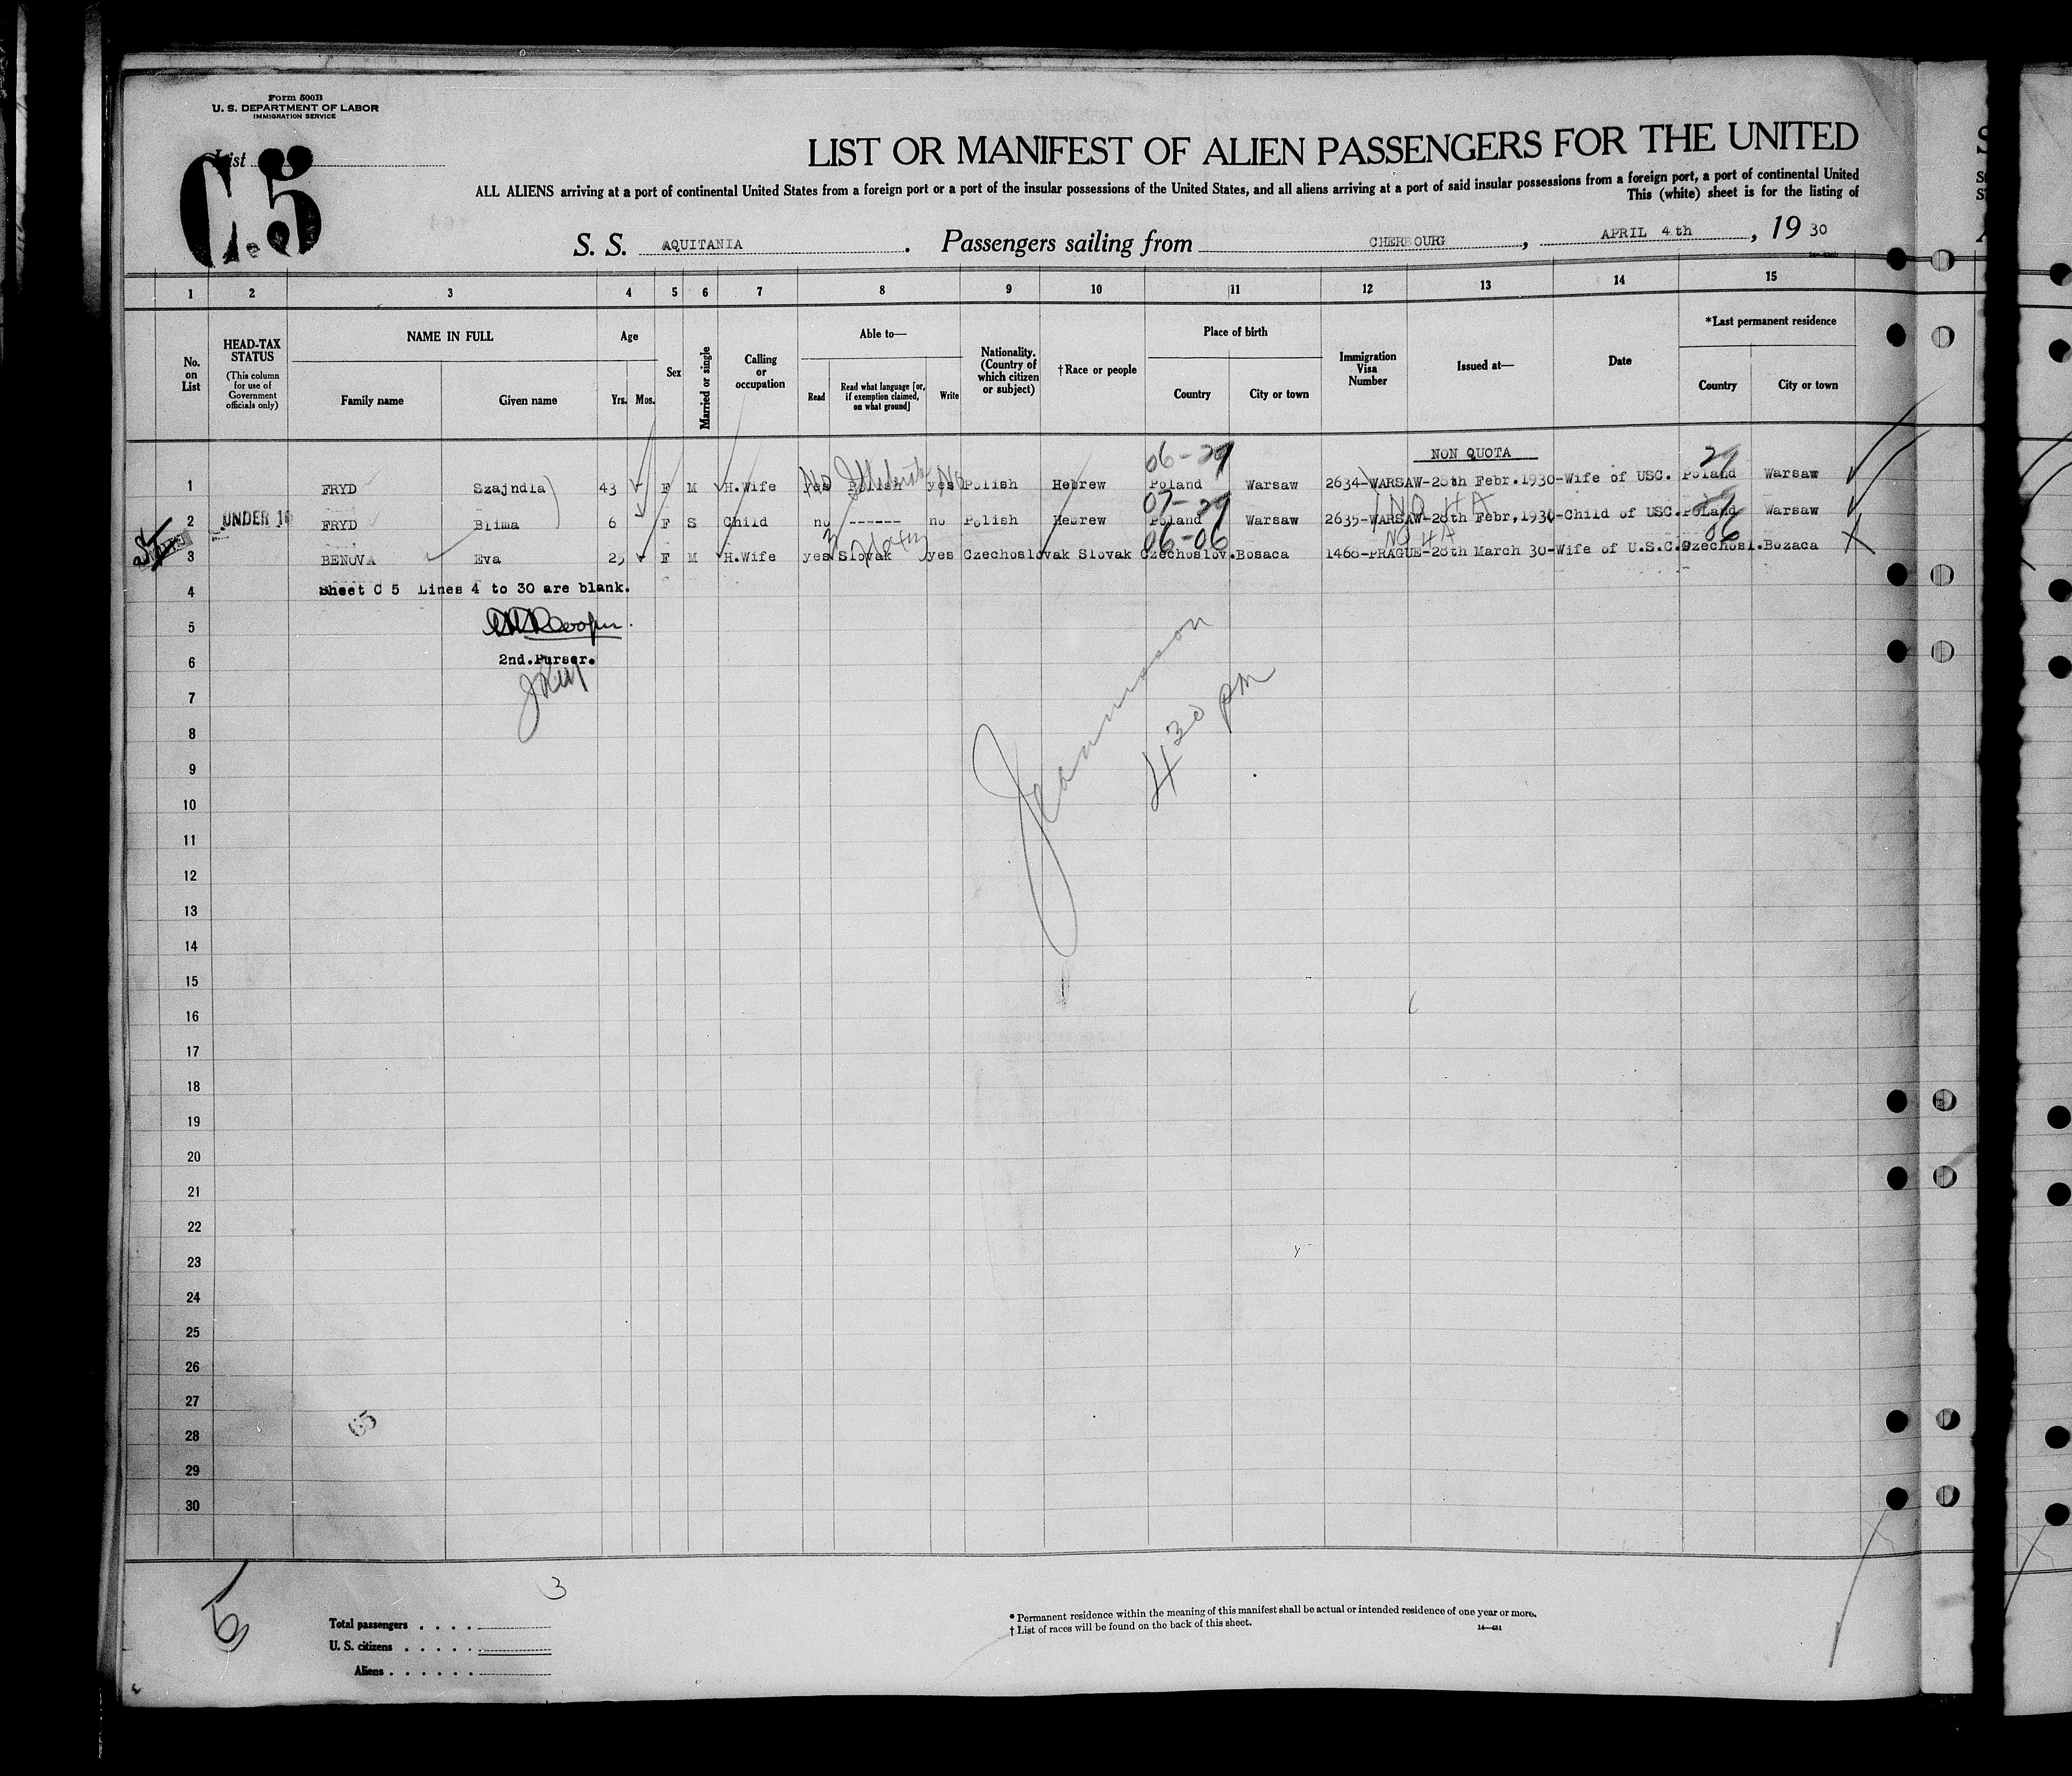 Form 500B
U. S. DEPARTMENT OF LABOR
IMMIGRATION SERVICE
List
C.5
LIST OR MANIFEST OF ALIEN PASSENGERS FOR THE UNITED
ALL ALIENS arriving at a port of continental United States from a foreign port or a port of the insular possessions of the United States, and all aliens arriving at a port of said insular possessions from a foreign port, a port of continental United
This (white) sheet is for the listing of
S. S. AQUITANIA. Passengers sailing from CHERBOURG, APRIL 4th, 19 30
1 2 3 4 5 6 7 8 9 10 11 12 13 14 15
No. on List
HEAD-TAX STATUS
(This column for use of Government officials only)
NAME IN FULL
Family name
Given name
Age
Yrs. Mos.
Sex
Married or single
Calling or occupation
Able to—
Read
Read what language [or, if exemption claimed, on what ground]
Write
Nationality. (Country of which citizen or subject)
†Race or people
Place of birth
Country
City or town
Immigration Visa Number
Issued at—
Date
*Last permanent residence
Country
City or town
NON QUOTA
06-29 29
1 FRYD Szajndla 43 F M H.Wife No yes Polish yes No Polish Hebrew Poland Warsaw 2634-WARSAW-28th Febr.1930-Wife of USC. Poland Warsaw
07-29 NO HA
2 UNDER 16 FRYD Blima 6 F S Child no ------ no Polish Hebrew Poland Warsaw 2635-WARSAW-28th Febr,1930-Child of USC.Poland Warsaw
06-06 NO HA 06
3 BENOVA Eva 25 F M H.Wife yes Slovak yes Czechoslovak Slovak Czechoslov.Bosaca 1468-PRAGUE-28th March 30-Wife of U.S.C.Czechosl.Bozaca
4 Sheet C 5 Lines 4 to 30 are blank.
5
6 2nd.Purser.
7
8
4 30 pm
9
10
11
12
13
14
15
16
17
18
19
20
21
22
23
24
25
26
27
28
29
30
3
5
Total passengers
U. S. citizens
Aliens
* Permanent residence within the meaning of this manifest shall be actual or intended residence of one year or more.
† List of races will be found on the back of this sheet.